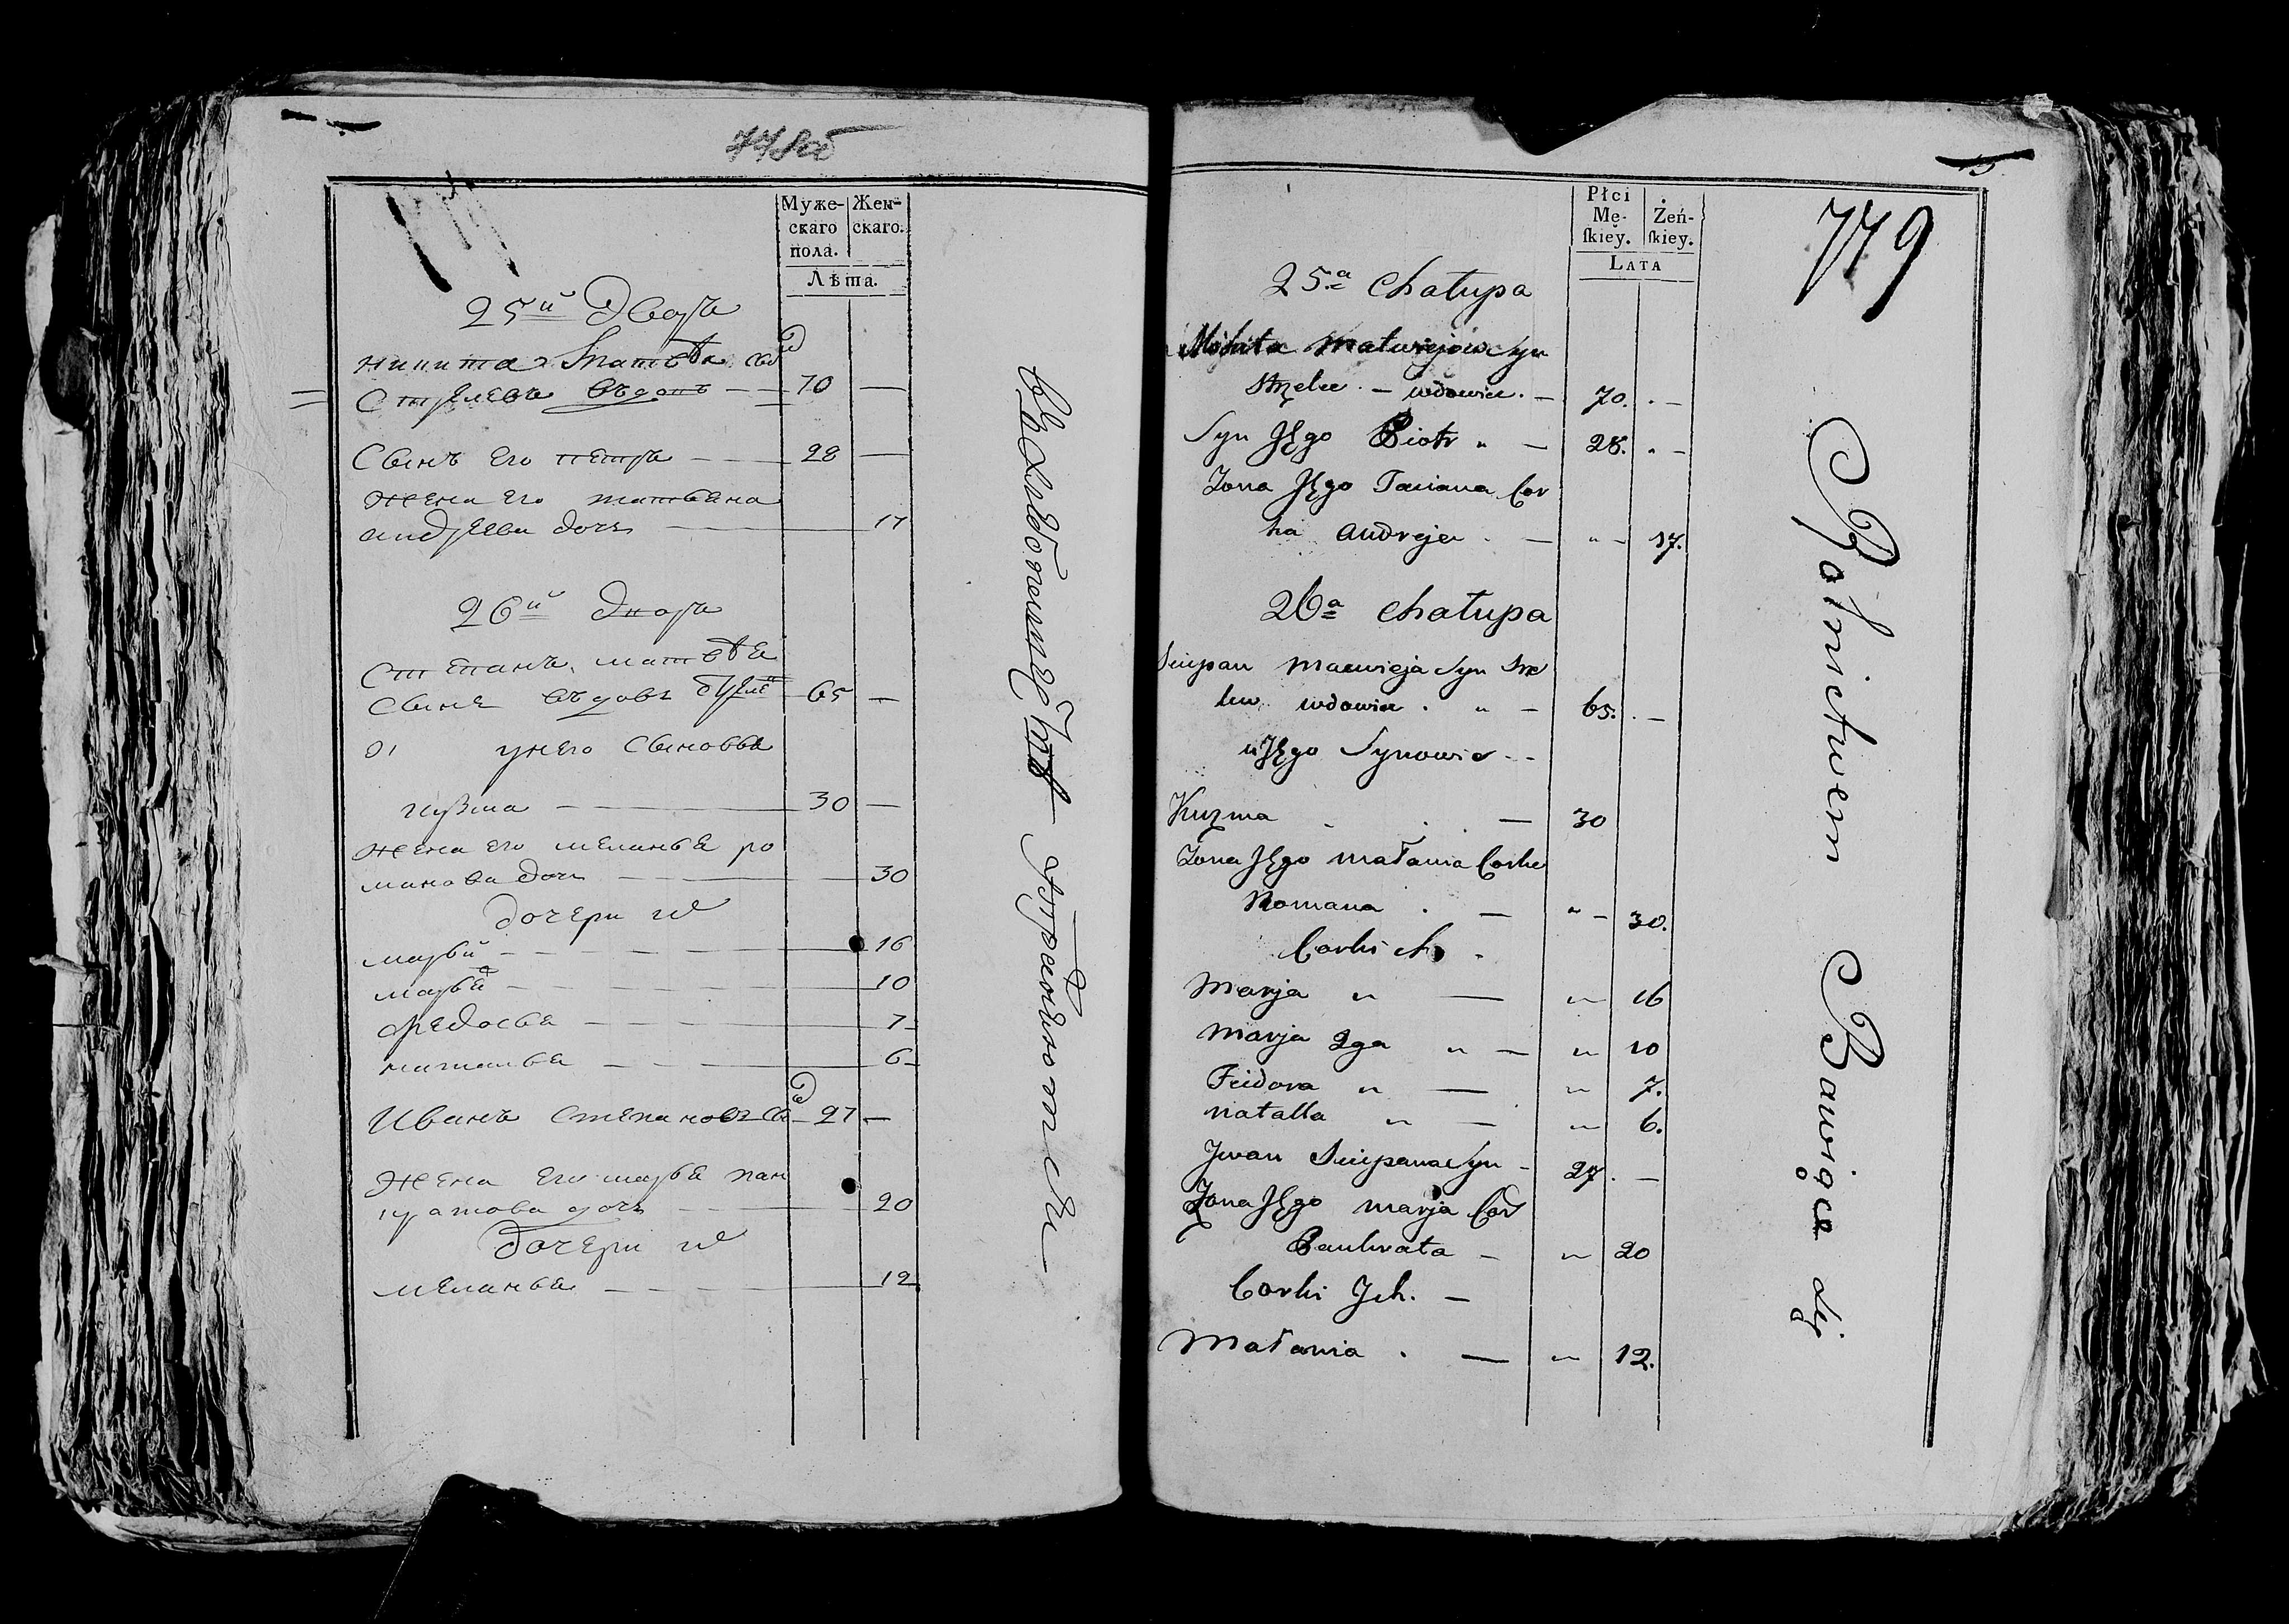 778об
Муже-
скаго
пола.
Жен-
скаго.
Лѣта.
25й Дворъ
никита Матвѣя
Стрелевъ въдовъ — 70 —
Сынъ Его петръ — 28 —
жена Его татьяна
андреева дочь — 17
26й Дворъ
Степанъ матвѣя
Сынъ въдовъ — 65 —
унего Сыновья
кузма — 30 —
жена его меланья ро
манова дочь — 30
дочери их
марья — 16
марья — 10
Федосья — 7
наталья — 6
Иванъ Степановъ — 27 —
жена Его марья пан
кратова дочь — 20
дочери их
меланья — 12
въ хлебопашестве
15
779
Płci
Mę-
skiey.
Żeń-
skiey.
LATA
25.a Chałupa
Mikita Matwiejow Syn
Strzelec. — wdowiec. — 70. . —
Syn Jego Piotr „ — 28. . —
Zona Jego Taciana Cor
ka Andreja . — „ — 17.
26a Chałupa
Sciepan Macwieja Syn Strze
lec wdowiec . „ — 65. . —
u Jego Synowie - -
Kuzma — 30
Zona Jego Małania Corka
Romana . — „ — 30.
Corki ich .
Marja „ — „ 16
Marja 2ga „ — „ 10
Feidora „ — „ 7.
Natalla „ — „ 6.
Jwan Sciepana Syn - 27 . —
Zona Jego Marja Cor
Pankrata — „ 20
Corki Jch. —
Małania . — „ 12.
Rolnictwem Bawiące się